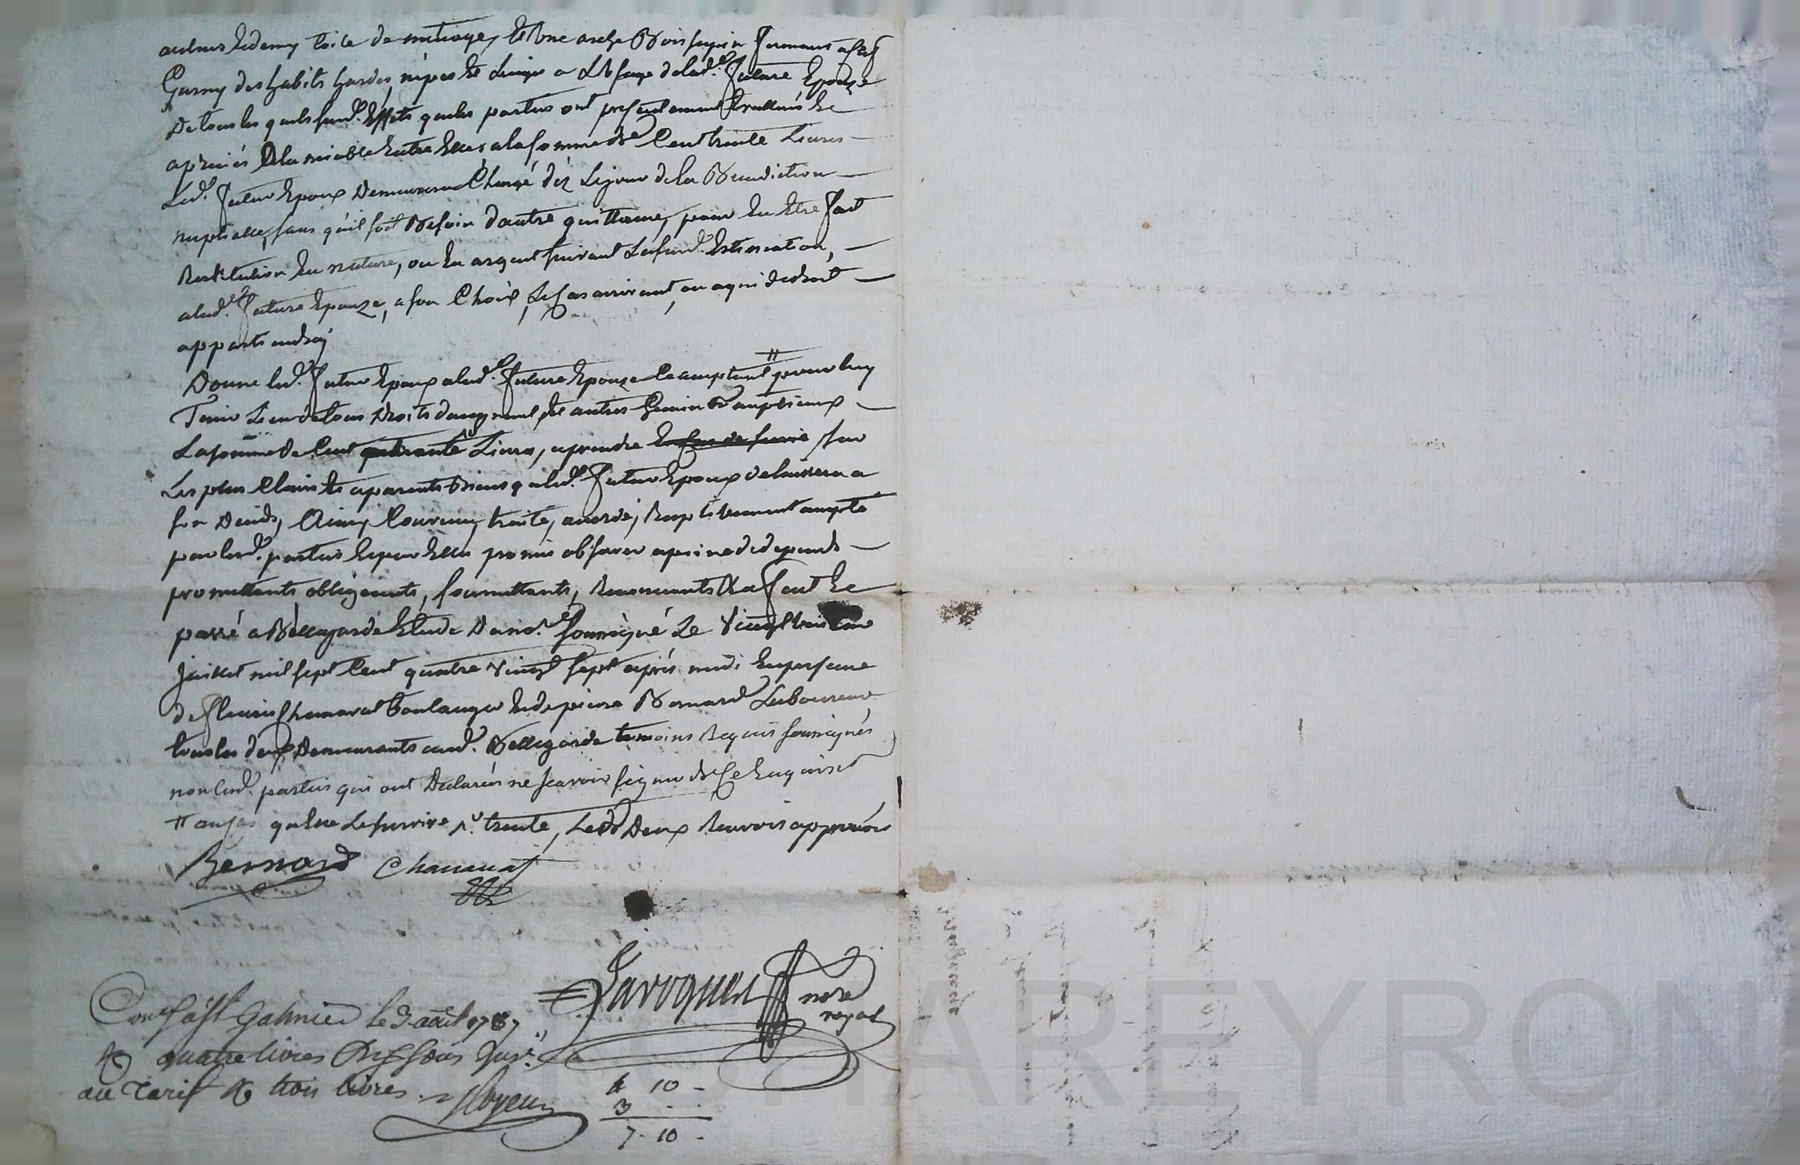 aulnes & demy toile de menage, et une arche Bois sapin fermant a clef
Garny des habits hardes, nipes et linges a L'usage de lad.e future Epouze
De tous les quels susd. Effets que les parties ont presentement Evalués Et
apreciés a la miable Entre Elles a la somme de Cent trente Livres
Led. futur Epoux Demeurera Chargé dèz Le jour de la Benediction
nuptialle, sans qu'il soit Besoin d'autre quittance, pour En Etre fait
Restitution En nature, ou En argent suivant La susd. Estimation,
a lad.e future Epouze, a son Choix, Le Cas arrivant, ou a qui de droit
appartiendra
Donne led. futur Epoux a lad.e future Epouze Acceptant // pour luy
Tenir Lieu de tous Droits d'augment et autres Gains Nuptiaux
La somme de Cent quarante Livres, a prendre En Cas de survie sur
Les plus Clairs et aparents Biens que led. futur Epoux delaissera a
son Deces, Ainsy Convenu, traité, accordé, Respectivement accepté
par lesd. parties Et par Elles promis observer a peine de depends
promettants obligeants, soumettants, Renonceants &a fait Et
passé a Bellegarde Etude Du no.re soussigné Le Vingt trois
Juillet mil sept Cent quatre vingt sept après midi En presence
de fleury Chamarat boulanger Et de pierre Bernard Laboureur
tous les deux Demeurants aud. Bellegarde temoins Requis soussignés
non lesd. parties qui ont Declarés ne sçavoir signer de Ce Enquis et
// au cas qu'elle Le survive trente, Lesd. Deux Renvois approuvés
Bernard Chamarat
Jaroquet
no.re
royal
Con.lé à St Galmier le 3. août 1787
R quatre livres Dix sous Inf.é
au Tarif R trois livres.
4 10 -
3 . .
7 . 10 -
CHAREYRON